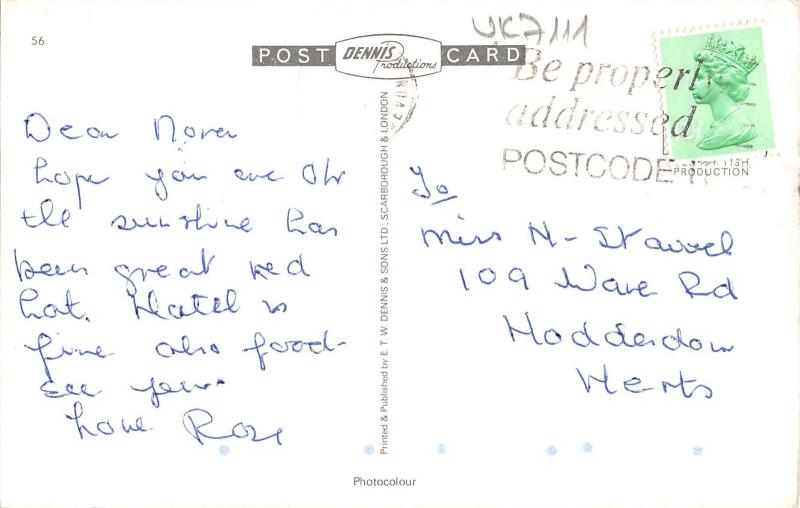 56
UK7111
POST DENNIS Productions CARD
Be properly
addressed
POSTCODE
PRODUCTION
Dear Nora
hope you are OK
the sunshine has
been great red
hot. Hotel is
fine also food-
see you.
Love Rose
Printed & Published by E. T. W. DENNIS & SONS LTD., SCARBOROUGH & LONDON
To
Miss N-
109 Ware Rd
Hoddesdon
Herts
Photocolour